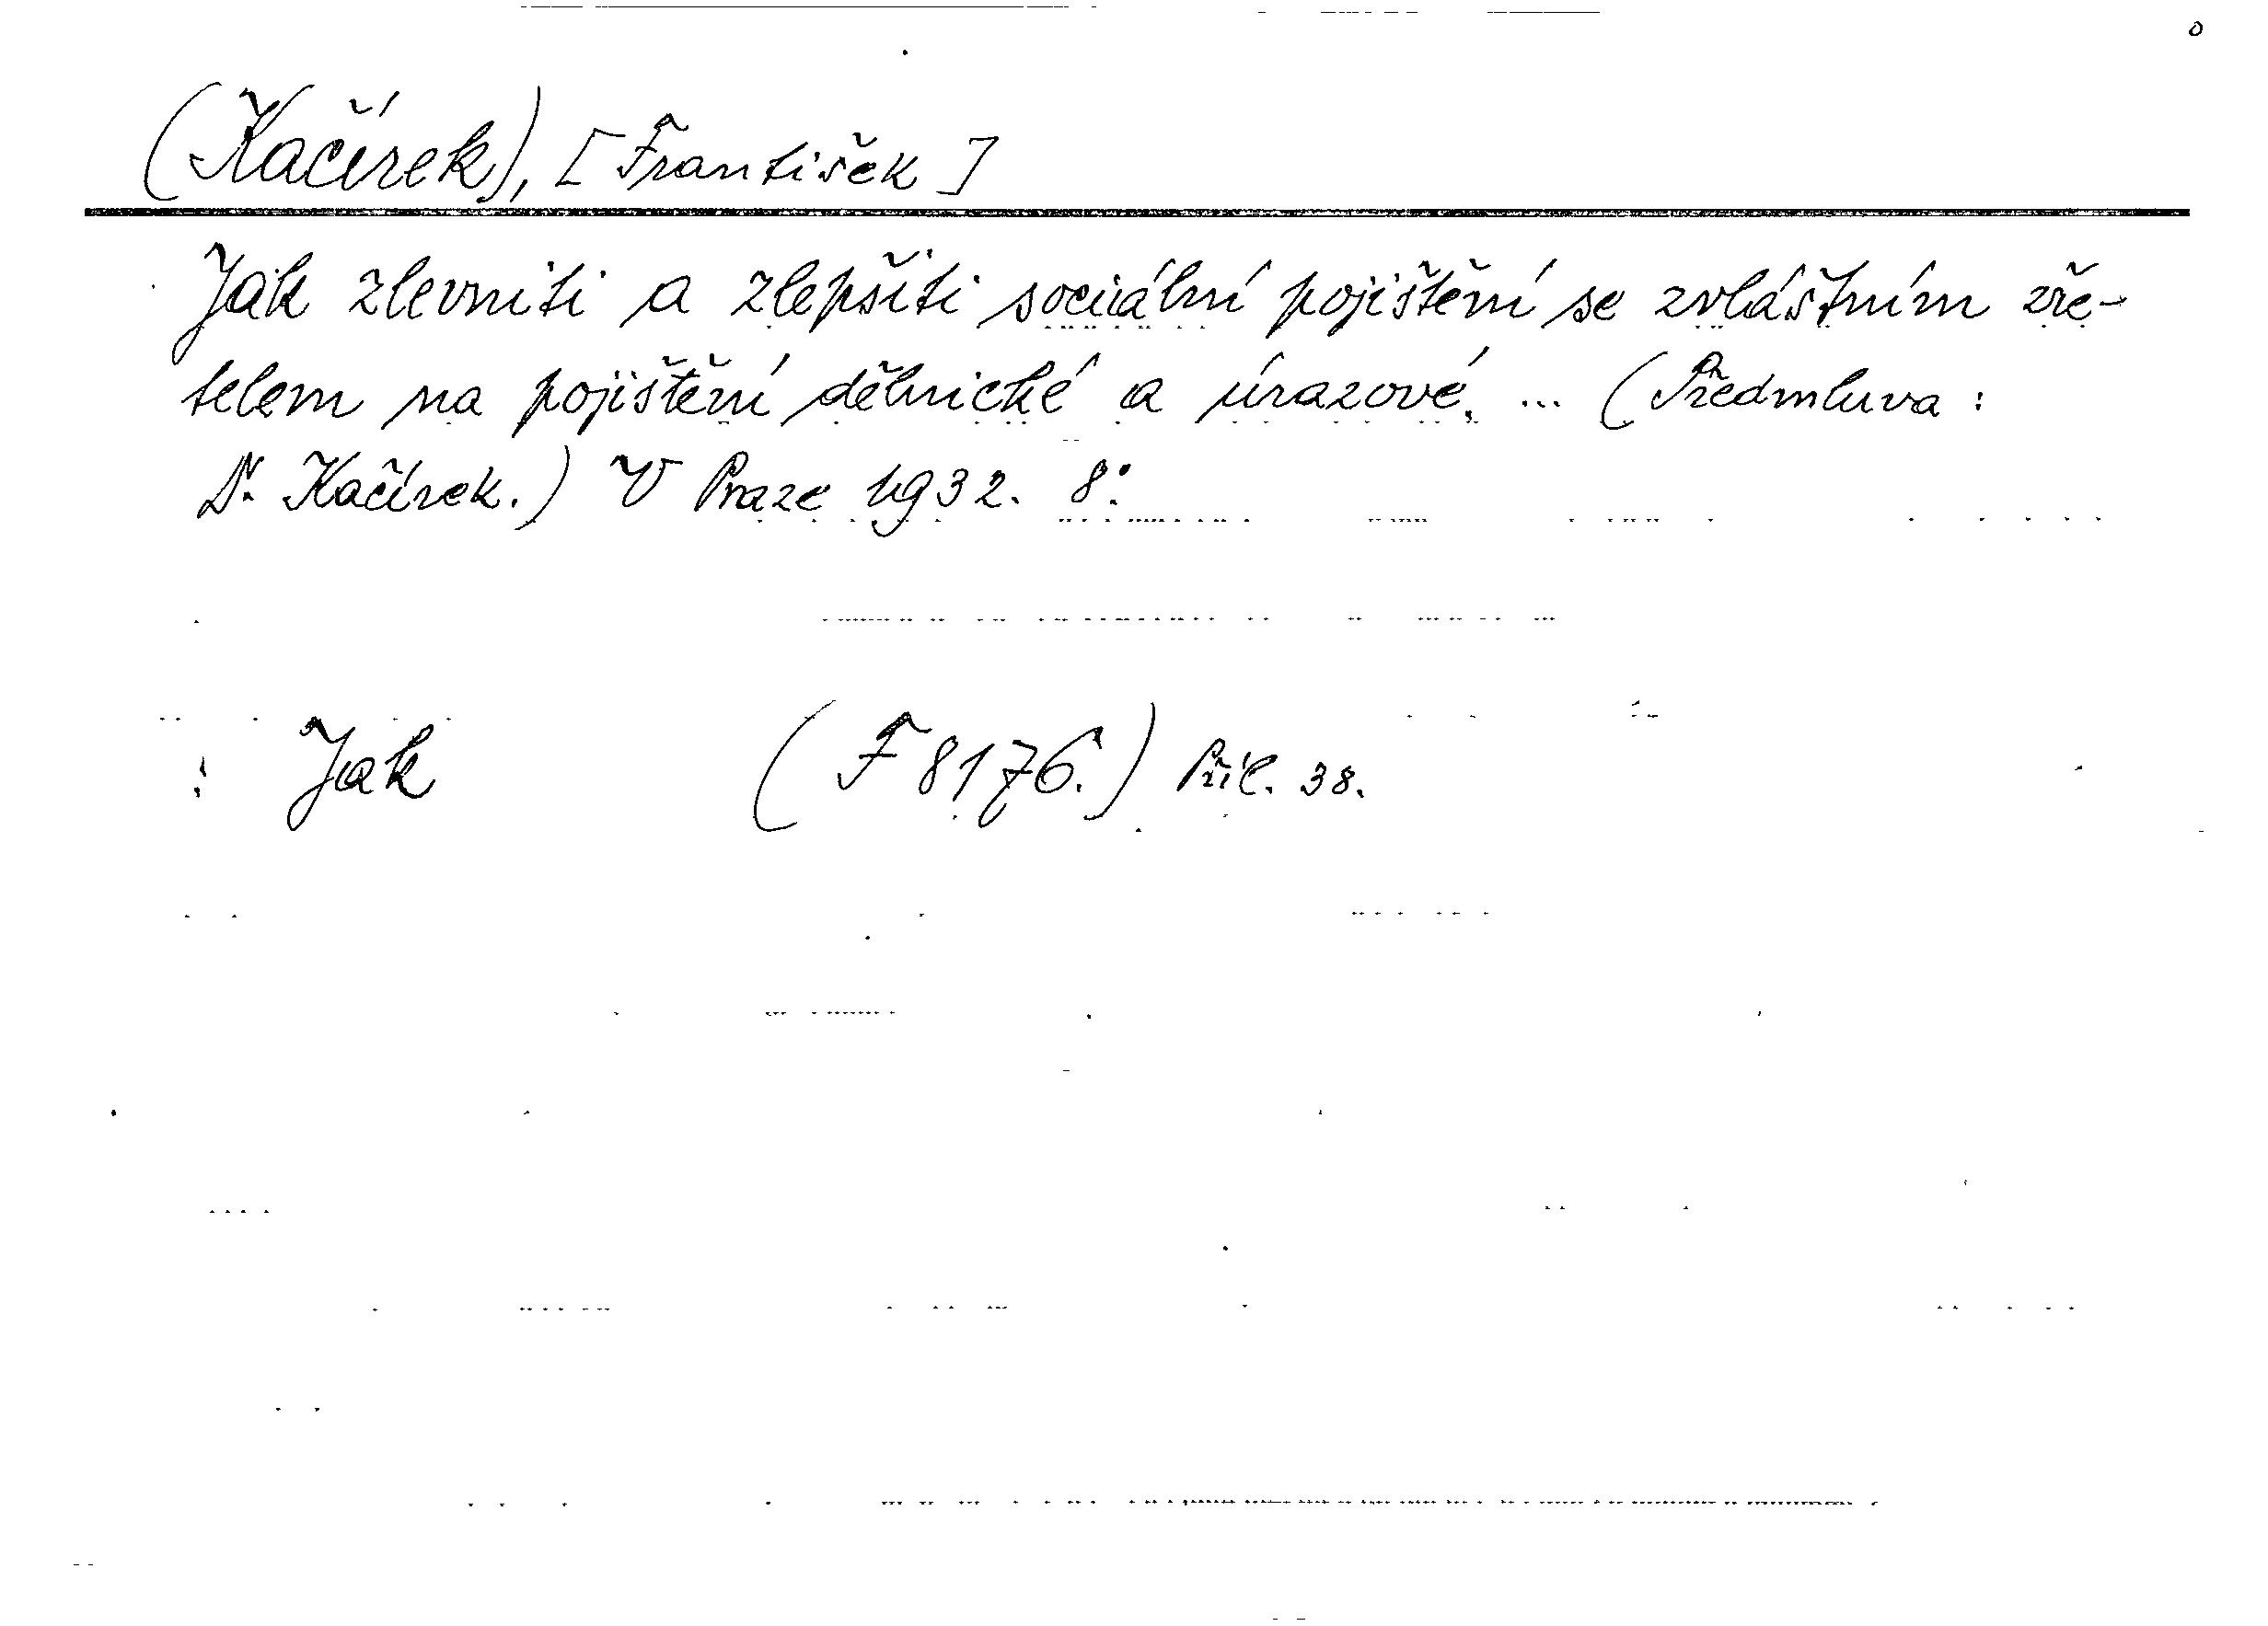 (Kačírek), [František]
Jak zlevniti a zlepšiti sociální pojištění se zvláštním zře-
telem na pojištění dělnické a úrazové. ... (Předmluva:
Dr. Kačírek.) V Praze 1932. 8°.
: Jak (F 8176.) Příl. 38.